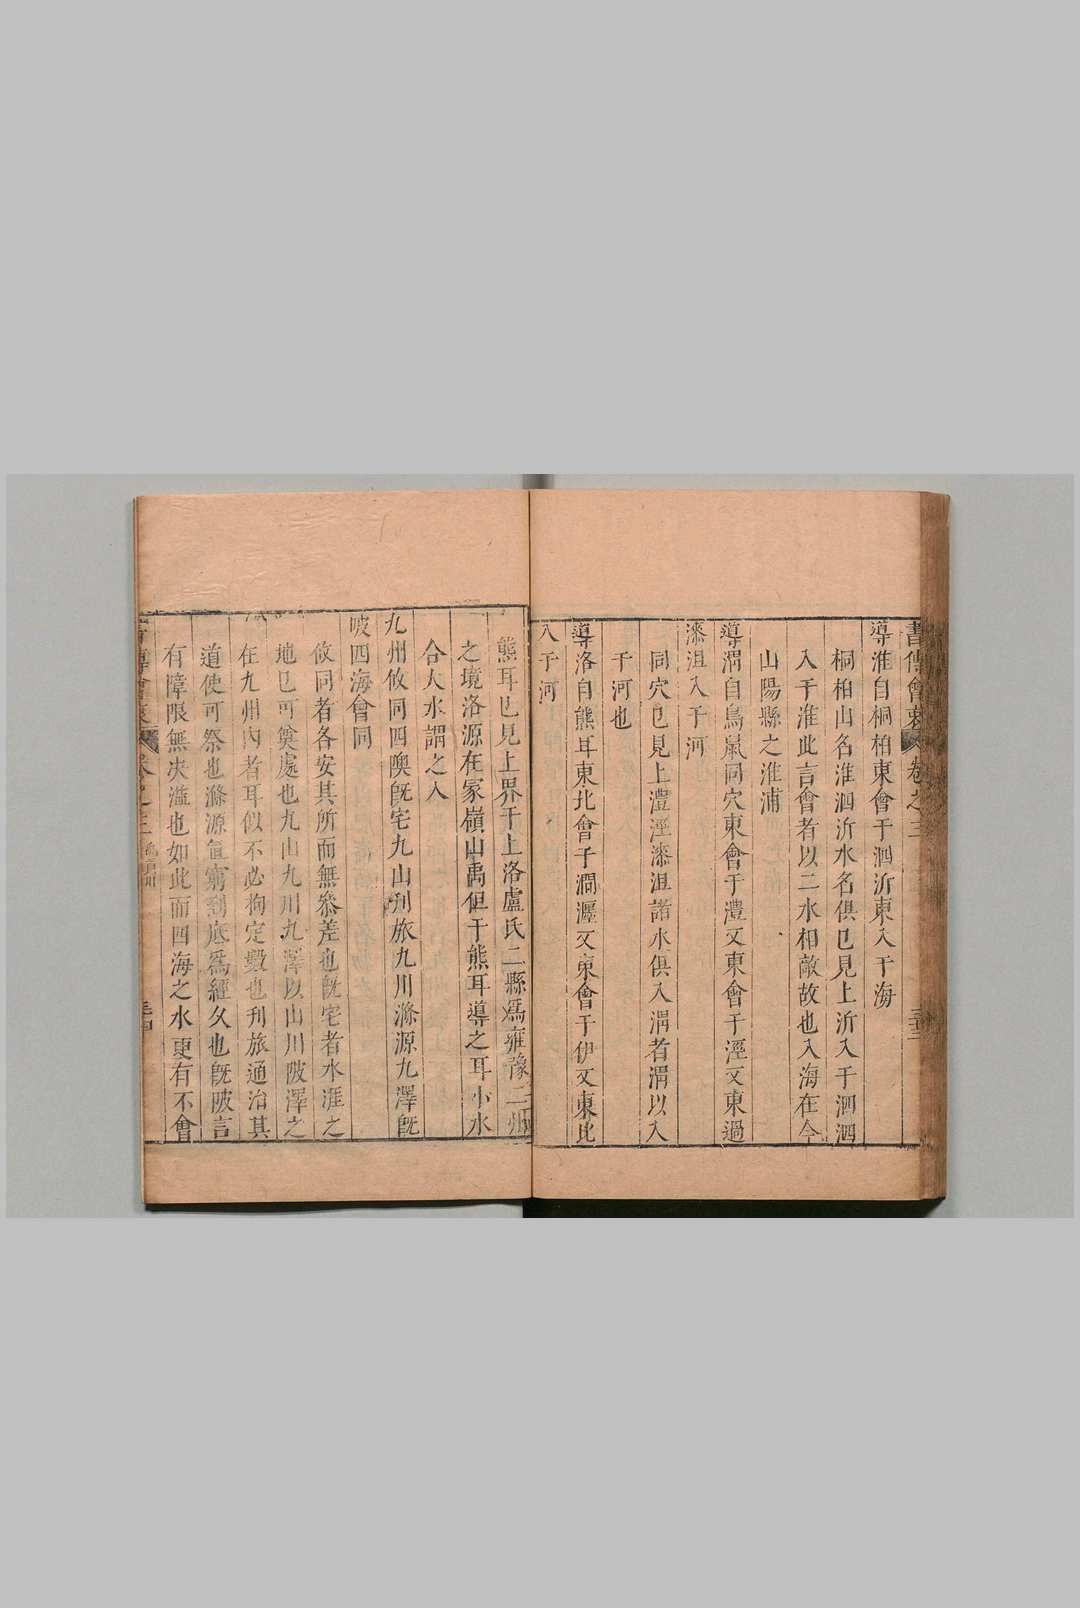 書傳會衷 卷之三 三十三
導淮自桐柏東會于泗沂東入于海
桐柏山名淮泗沂水名俱已見上沂入于泗泗
入于淮此言會者以二水相敵故也入海在今
山陽縣之淮浦
導渭自鳥鼠同穴東會于灃又東會于涇又東過
漆沮入于河
同穴已見上灃涇漆沮諸水俱入渭者渭以入
于河也
導洛自熊耳東北會于澗瀍又東會于伊又東北
入于河
熊耳已見上界于上洛盧氏二縣爲雍豫二州
之境洛源在冢嶺山禹但于熊耳導之耳小水
合大水謂之入
九州攸同四隩旣宅九山刋旅九川滌源九澤旣
陂四海會同
攸同者各安其所而無叅差也旣宅者水涯之
地已可奠處也九山九川九澤以山川陂澤之
在九州內者耳似不必拘定數也刋旅通治其
道使可祭也滌源直窮到底爲經久也旣陂言
有障限無决溢也如此而四海之水更有不會
書傳會衷 卷之三 禹貢 三十四